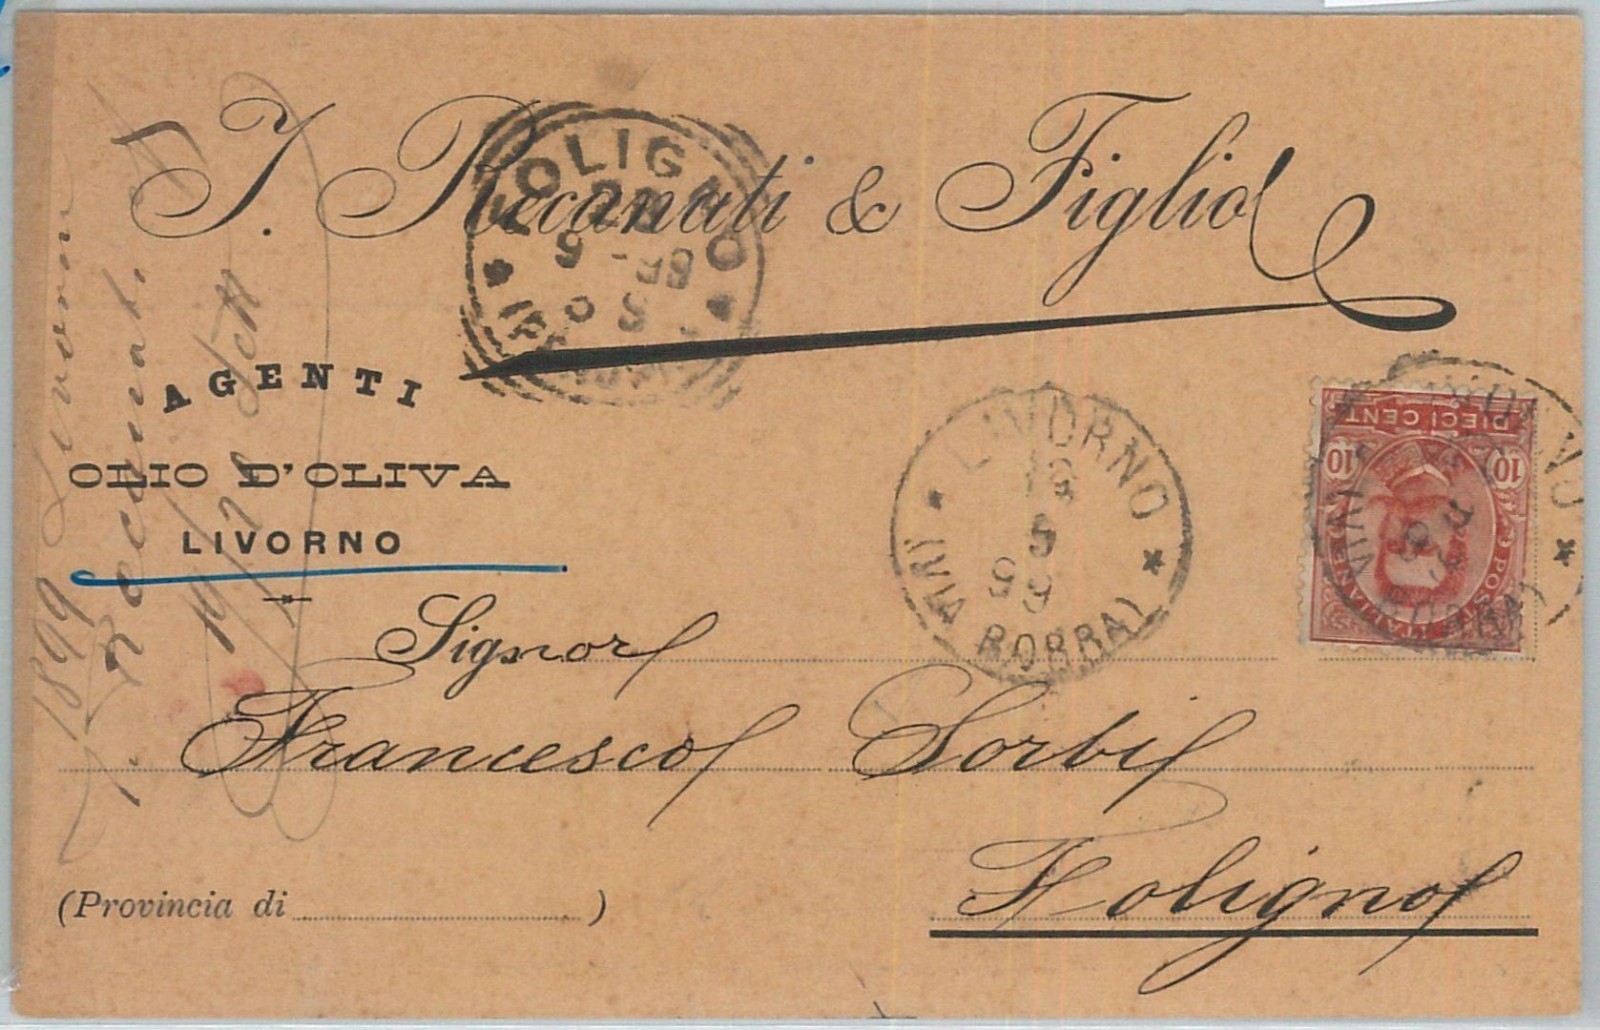 J. Recanati & Figlio
AGENTI
OLIO D'OLIVA
LIVORNO
Signor
Francesco Sorbi
Foligno
(Provincia di )
FOLIGNO
9 - 99
LIVORNO
5
99
(VIA BORRA)
LIVORNO
(VIA BORRA)
DIECI CENT.
10 10
POSTE ITALIANE
1899 Livorno
J. Recanati
19/20 Sett